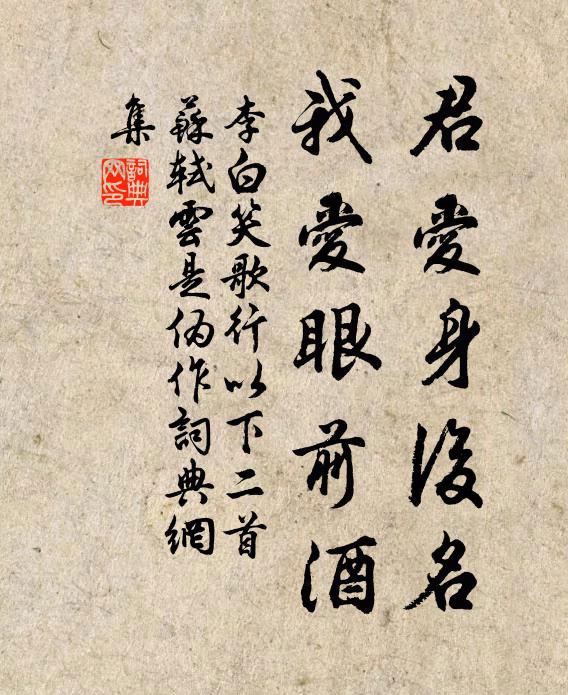 君愛身後名
我愛眼前酒
李白笑歌行以下二首
蘇軾雲是偽作詞典網
集
詞典
网印